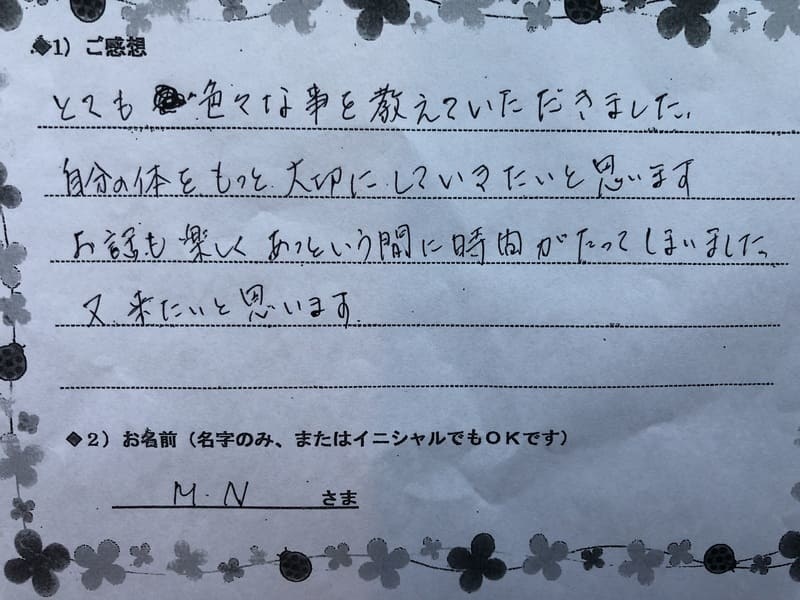 ◆1）ご感想
とても 色々な事を教えていただきました。
自分の体をもっと大切にしていきたいと思います
お話も楽しくあっという間に時間がたってしまいました。
又来たいと思います。
◆2）お名前（名字のみ、またはイニシャルでもOKです）
M.N さま